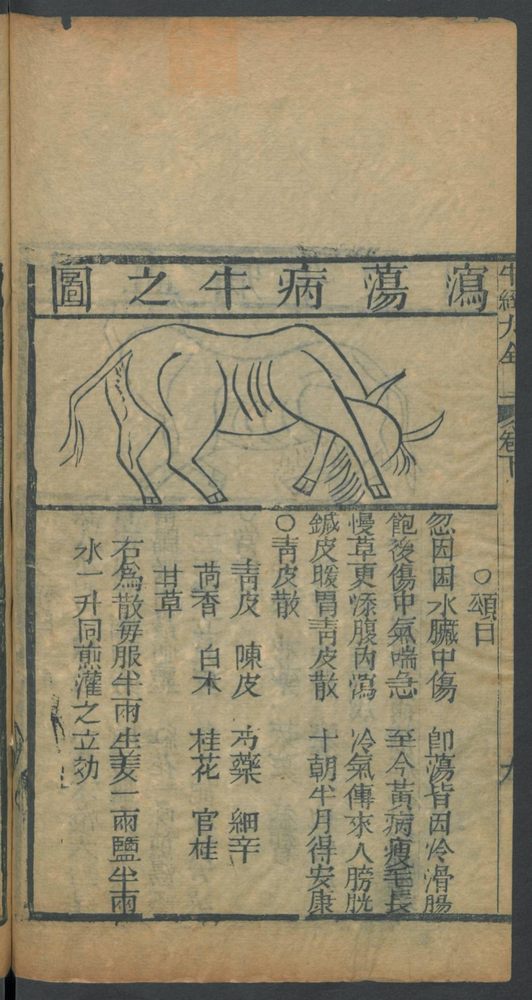 瀉蕩病牛之圖
牛經大全 卷下
○頌曰
忽因困水臟中傷 卽蕩皆因冷滑腸
飽後傷中氣喘急 至今黃病瘦毛長
慢草更添腹內瀉 冷氣傳來入膀胱
鍼皮暖胃靑皮散 十朝半月得安康
○靑皮散
靑皮 陳皮 芍藥 細辛
茴香 白朮 桂花 官桂
甘草
右爲散每服半兩生姜一兩鹽半兩
水一升同煎灌之立効
九